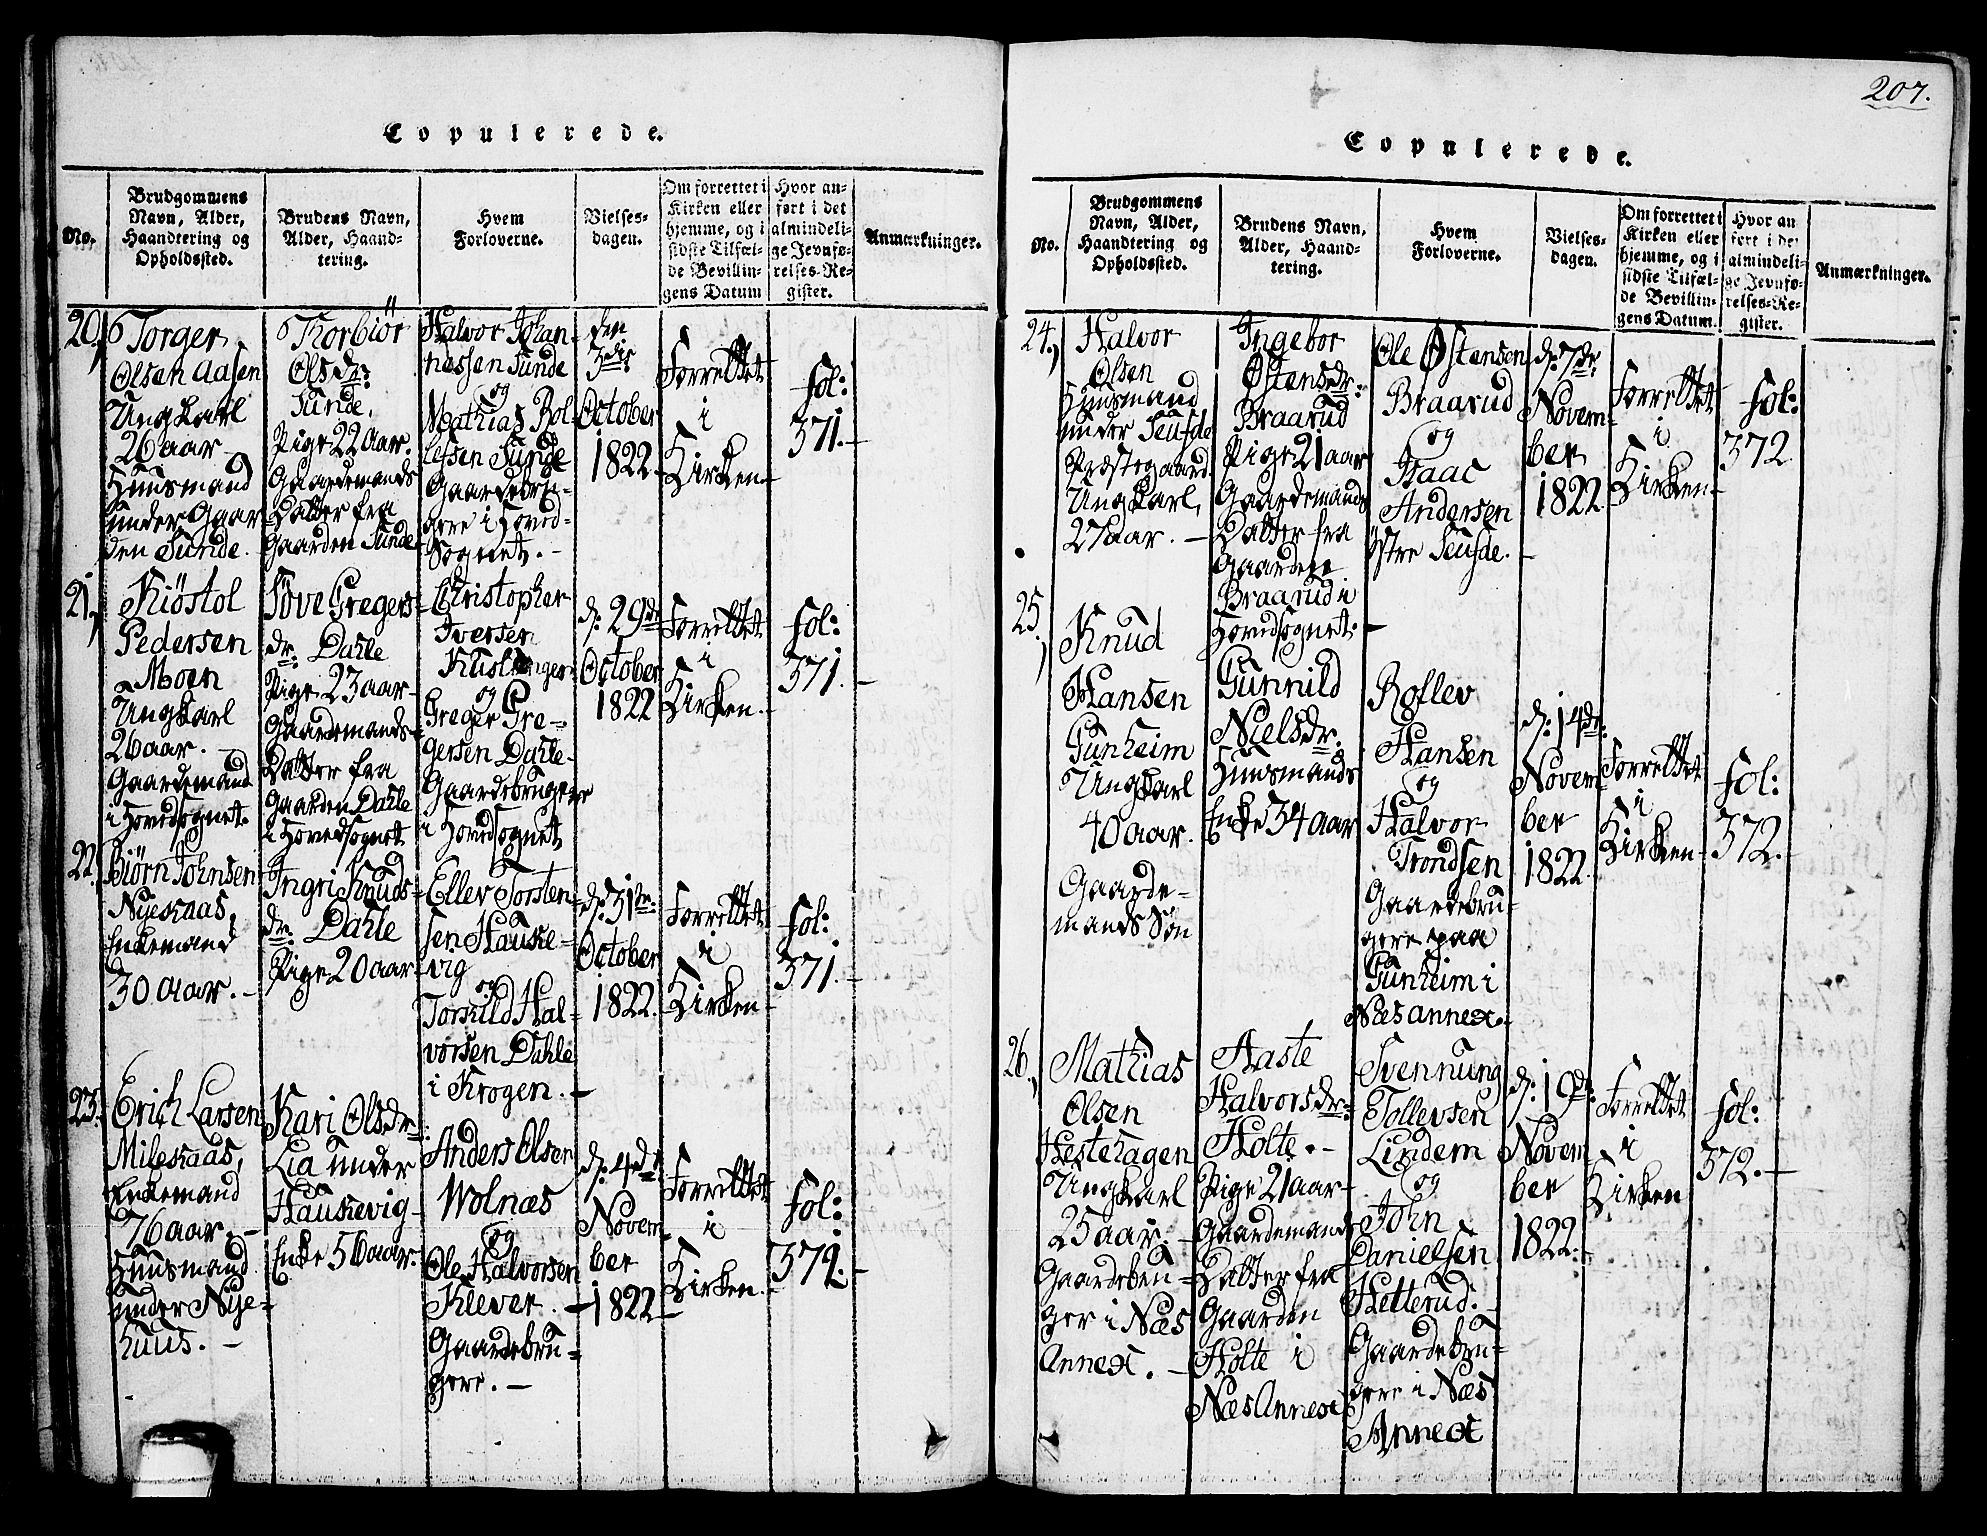 207.
Copulerede.
No.
Brudgommens
Navn, Alder,
Haandtering og
Opholdssted.
Brudens Navn,
Alder, Haand-
tering.
Hvem
Forloverne.
Vielses-
dagen.
Om forrettet i
Kirken eller
hjemme, og i
sidste Tilfæl-
de Bevillin-
gens Datum
Hvor an-
ført i det
almindeli-
ge Jevnfø-
relses-Re-
gister.
Anmærkninger.
20,
Torger
Olsen Aasen
Ungkarl
26 aar
Huusmand
under Gaar-
den Sunde.
Thorbiör
Olsdr:
Sunde,
Pige 22 Aar.
Gaardemands
Datter fra
Gaarden Sunde
Halvor Johan-
nessen Sunde
og
Mathias Rol-
lefsen Sunde
Gaardebru-
gere i Hoved-
Sognet. -
den
3die
October
1822.
Forrettet
i
Kirken
fol:
371.
21,
Kiöstol
Pedersen
Moen
Ungkarl
26 aar. -
Gaardemand
i Hovedsognet.
Töve Gregers-
dr. Dahle
Pige 23 aar
Gaardemands-
Datter fra
Gaarden Dahle
i Hovedsognet
Christopher
Iversen
og
Greger Gre-
gersen Dahle
Gaardebrugere
i Hovedsognet
d: 29de
October
1822
Forrettet
i
Kirken.
fol:
371.
22.
Biørn Johnsen
Nyeskaas,
Enkemand
30 aar. -
Ingri Knuds-
dr. Dahle
Pige 20 aar
Ellev Torsten-
sen Hauke-
vig
og
Torkild Hal-
vorsen Dahle
i Krogen. -
d: 31te
October
1822.
Forrettet
i
Kirken
fol:
371.
23.
Erich Larsen
Mileskaas,
Enkemand
76 aar. -
Huusmand
under Nye-
huus. -
Kari Olsdr.:
Lia under
Haukevig
Enke 56 aar.
Anders Olsen
Wolnæs
og
Ole Halvorsen
Klever. -
Gaardebru-
gere. -
d: 4de
Novem
ber
1822
Forrettet
i
Kirken.
fol:
372.
Copulerede.
No.
Brudgommens
Navn, Alder,
Haandtering og
Opholdssted.
Brudens Navn,
Alder, Haand-
tering.
Hvem
Forloverne.
Vielses-
dagen.
Om forrettet i
Kirken eller
hjemme, og i
sidste Tilfæl-
de Bevillin-
gens Datum.
Hvor an
ført i det
almindeli-
ge Jevnfø-
relses-Re-
gister.
Anmærkninger.
24.
Halvor
Olsen
Huusmand
under Seufde
Præstegaard
Ungkarl,
27 aar. -
Ingebor
Østensdr:
Braarud
Pige 21 aar
Gaardemands
Datter fra
Gaarden
Braarud i
Hovedsognet.
Ole Østensen
Braarud
og
Isaac
Andersen
østre Seufde. -
d: 7de
Novem-
ber
1822
Forrettet
i
Kirken
fol:
372.
25
Knud
Hansen
Gunheim
Ungkarl
40 aar.
Gaarde-
mands Søn
Gunnild
Nielsdr.
Huusmands
Enke 34 aar
Roflev
Hansen
og
Halvor
Trondsen
Gaardebru-
gere paa
Gunheim i
Næs annex.
d: 14de
Novem
ber
1822.
Forrettet
i
Kirken
fol:
372.
26.
Mathias
Olsen
Hestehagen
Ungkarl
25 aar. -
Gaardebru-
ger i Næs
Annex. -
Aaste
Halvorsdr:
Holte. -
Pige 21 aar
Gaardemands
Datter fra
Gaarden
Holte i
Næs Annex
Svennung
Tollevsen
Lindem
og
John
Danielsen
Hetterud. -
Gaardebru-
gere i Næs
Annex
d: 19de
Novem
ber
1822.
Forrettet
i
Kirken
fol:
372.